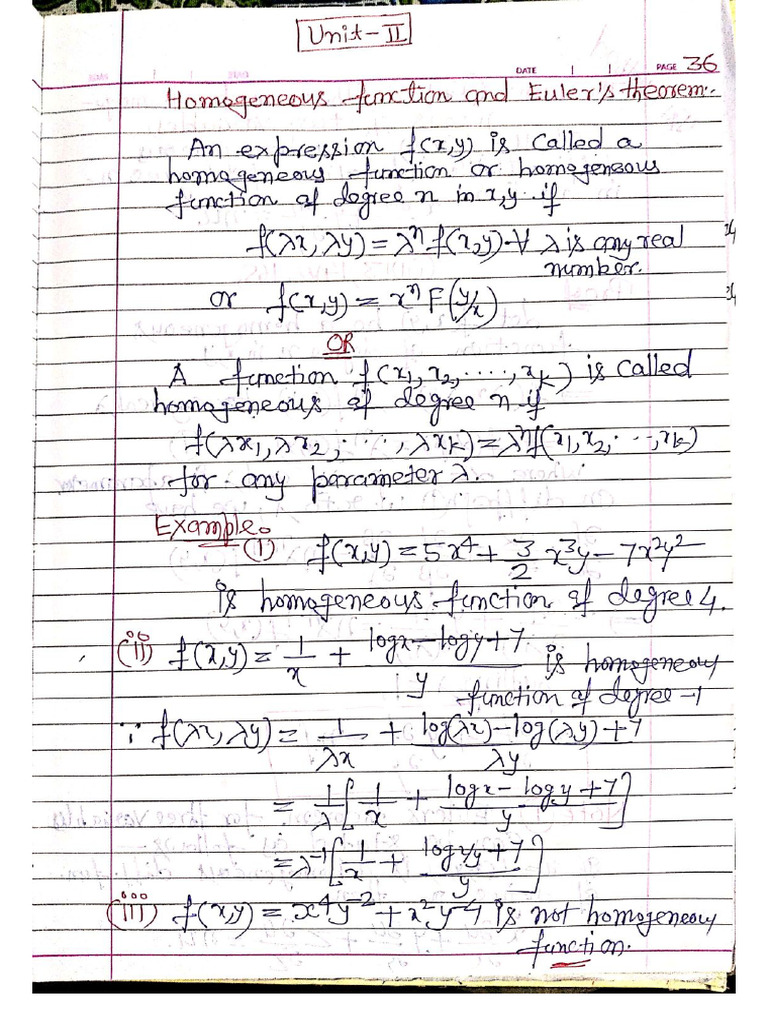 Unit-II
DATE | | PAGE 36
Homogeneous function and Euler's theorem.
An expression f(x,y) is called a
homogeneous function or homogeneous
function of degree n in x,y if
f(λx, λy) = λⁿ f(x,y) ∀ λ is any real
number.
or f(x,y) = xⁿ F(y/x)
OR
A function f(x₁, x₂, ....., xₖ) is called
homogeneous of degree n if
f(λx₁, λx₂, ...., λxₖ) = λⁿf(x₁, x₂, ..., xₖ)
for any parameter λ.
Example.
(i) f(x,y) = 5x⁴ + 3/2 x³y - 7x²y²
is homogeneous function of degree 4.
(ii) f(x,y) = 1/x + (logx - logy + 7)/y is homogeneous
function of degree -1
∵ f(λx, λy) = 1/λx + (log(λx) - log(λy) + 7)/λy
= 1/λ [1/x + (logx - logy + 7)/y]
= λ⁻¹[1/x + (log x/y + 7)/y]
(iii) f(x,y) = x⁴y⁻² + x²y⁻⁴ is not homogeneous
function.